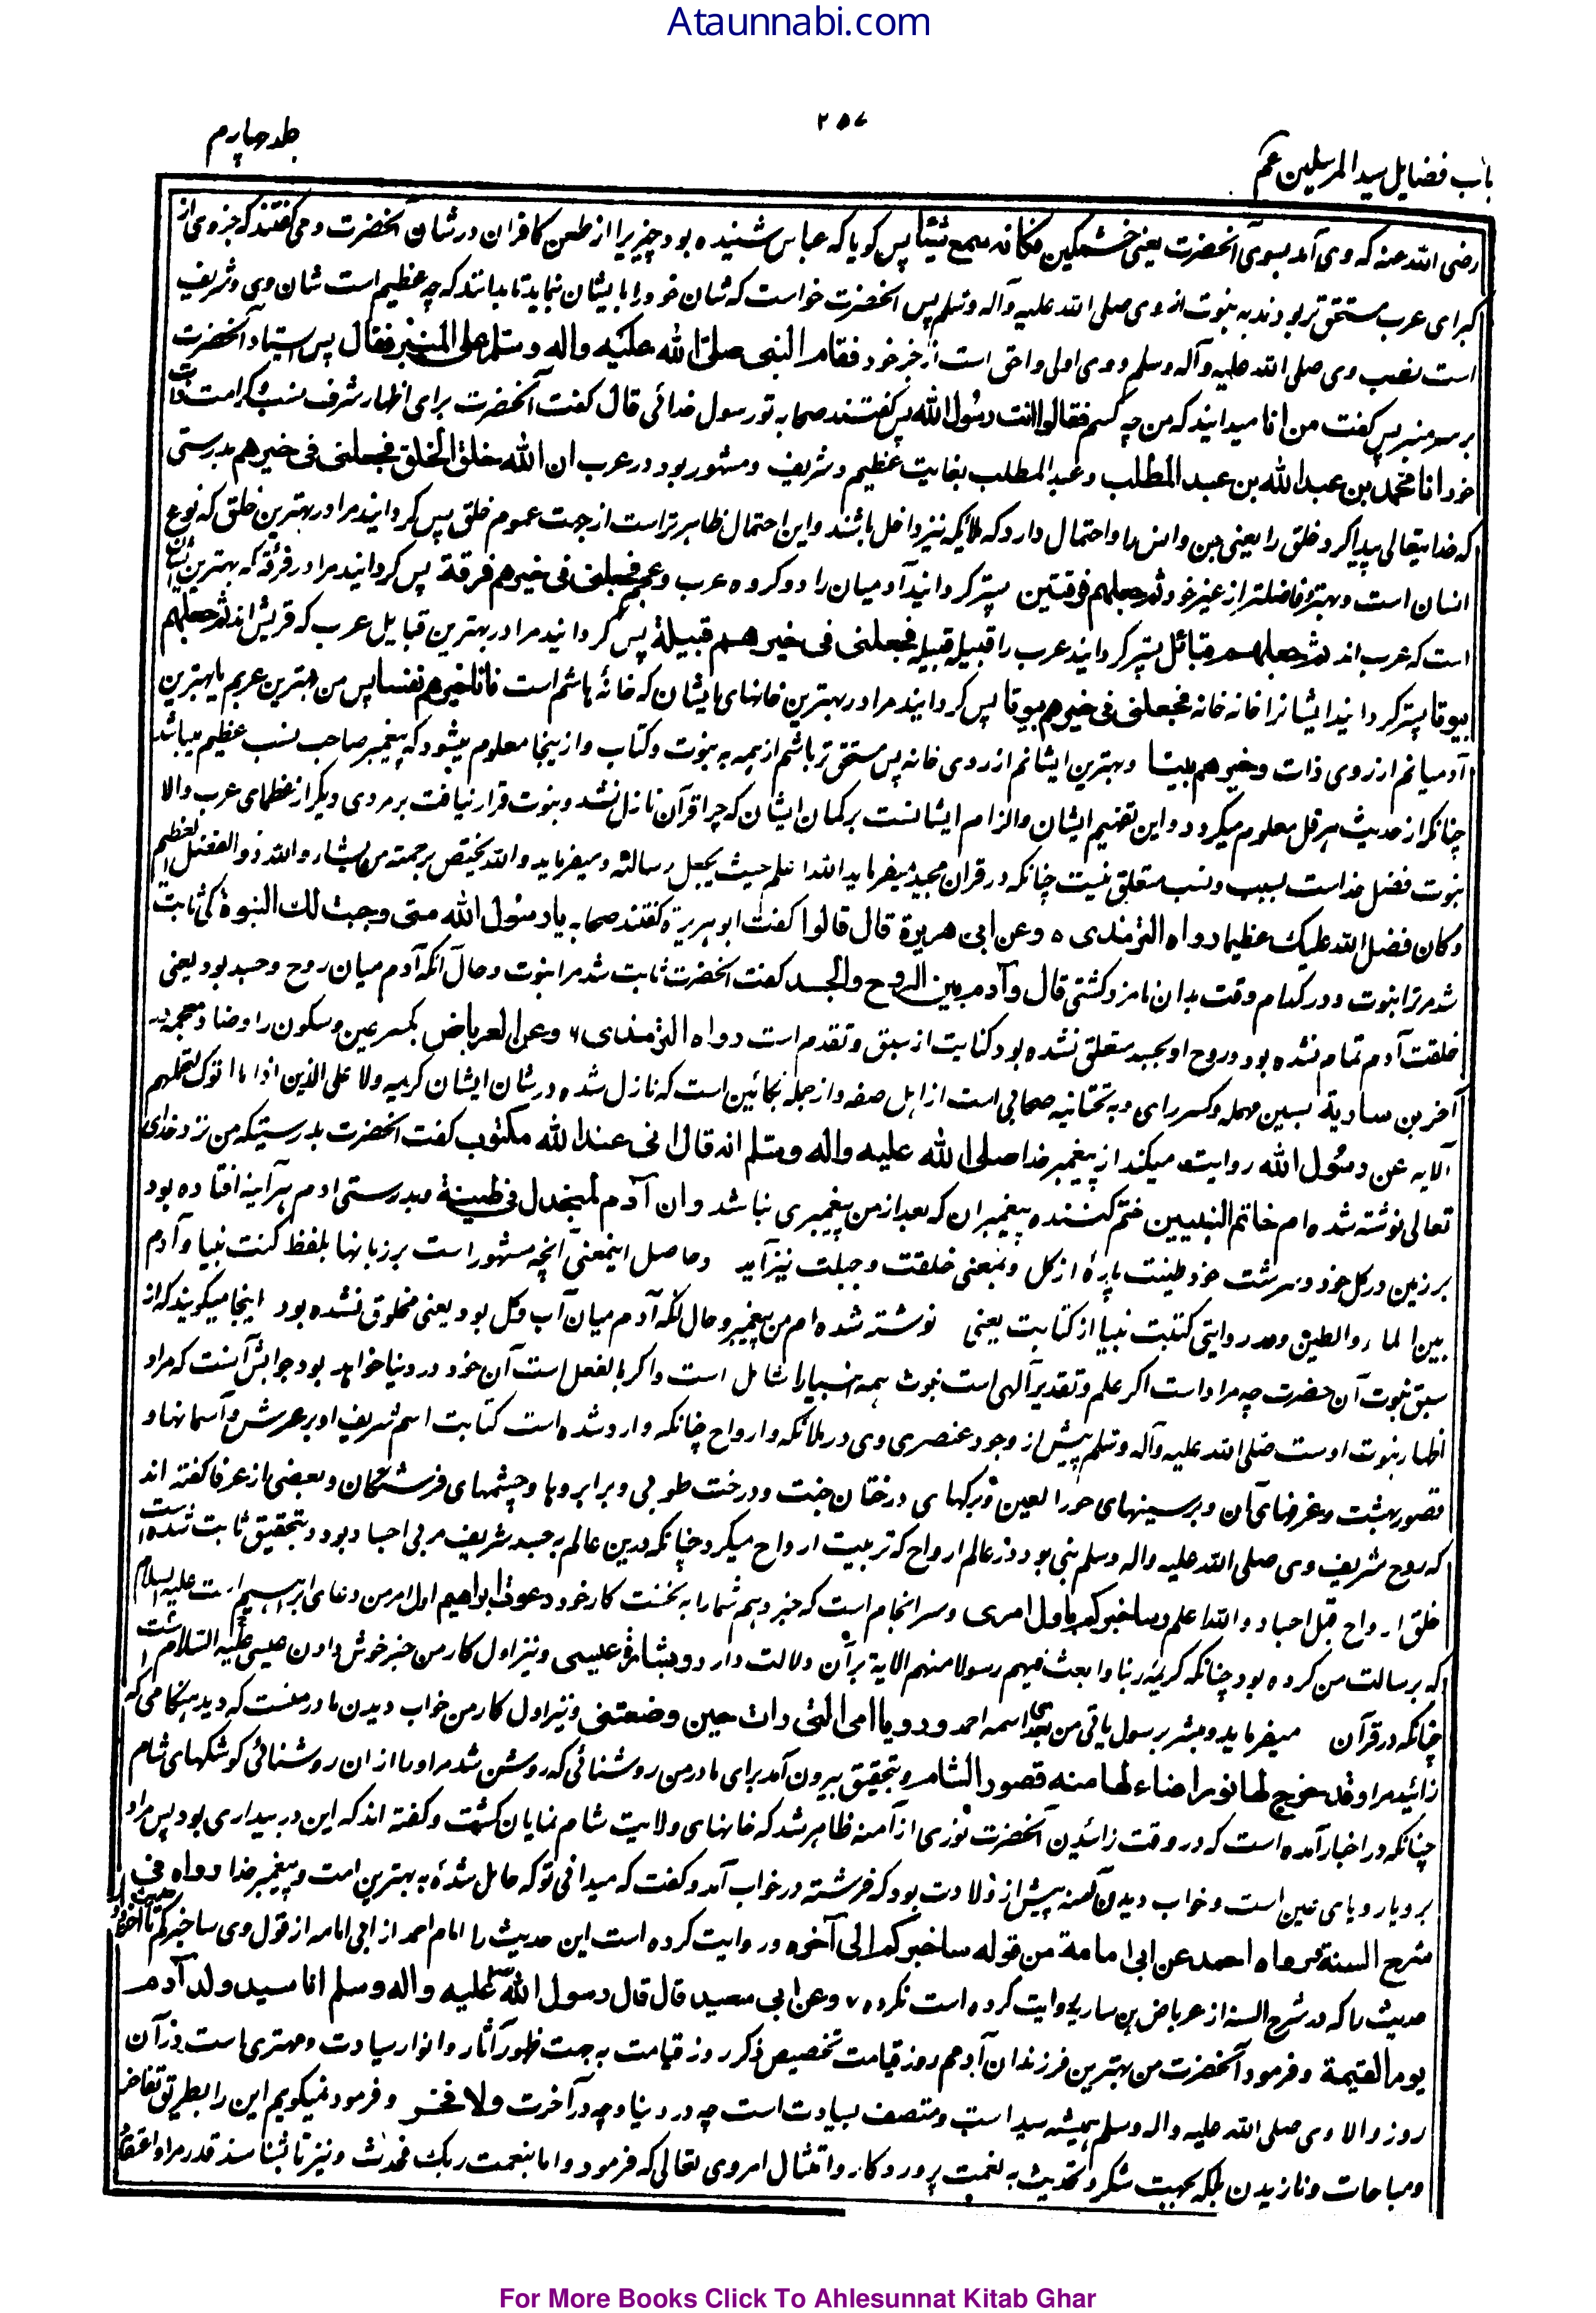 Ataunnabi.com
باب فضایل سید المرسلین عم
۲۵۷
جلد چهارم
رضی الله عنه که وی آمد بسوی آنحضرت یعنی خشمگین فکانه سمع شیئا پس گویا که عباس شنیده بود چیزیرا از طعن کافران در شان آنحضرت و می گفتند که جزوی از
کبرای عرب مستحق تر بودند به نبوت از وی صلی الله علیه وآله وسلم پس آنحضرت خواست که شان خود را بایشان نماید تا بدانند که چه عظیم است شان وی و شریف
است نصب وی صلی الله علیه وآله وسلم و وی اولی واحق است از خر خود فقام النبی صلی الله علیه واله وسلم علی المنبر فقال پس استاد آنحضرت
بر سر منبر پس گفت من انا میدانید که من چه کسم فقالوا انت رسول الله پس گفتند صحابه تو رسول خدائی قال گفت آنحضرت برای اظهار شرف نسب و کرامت ذات
خود انا محمد بن عبد الله بن عبد المطلب و عبد المطلب بغایت عظیم و شریف و مشهور بود در عرب ان الله خلق الخلق فجعلنی فی خیرهم بدرستی
که خدایتعالی پیدا کرد خلق را یعنی جن وانس را واحتمال دارد که ملائکه نیز داخل باشند و این احتمال ظاهر تر است از جهت عموم خلق پس گردانید مرا در بهترین خلق که نوع
انسان است و بهتر و فاضلتر از غیر خود ثم جعلهم فرقتین پستر گردانید آدمیان را دو گروه عرب و عجم فجعلنی فی خیرهم فرقة پس گردانید مرا در فرقه که بهترین ایشان
است که عرب اند ثم جعلهم قبائل پستر گردانید عرب را قبیله قبیله فجعلنی فی خیرهم قبیلة پس گردانید مرا در بهترین قبایل عرب که قریش اند ثم جعلهم
بیوتا پستر گردانید ایشانرا خانه خانه فجعلنی فی خیرهم بیوتا پس گردانید مرا در بهترین خانهای ایشان که خانۀ هاشم است فانا خیرهم نفسا پس من بهترین عربم یا بهترین
آدمیانم از روی ذات و خیرهم بیتا و بهترین ایشانم از روی خانه پس مستحق تر باشم از همه به نبوت و کتاب و ازینجا معلوم میشود که پیغمبر صاحب نسب عظیم میباشد
چنانکه از حدیث هرقل معلوم میگردد و این تفهیم ایشان والزام ایشانست بر گمان ایشان که چرا قرآن نازل نشد و نبوت قرار نیافت بر مردی دیگر از عظمای عرب والا
نبوت فضل خداست بسبب و نسب متعلق نیست چنانکه در قران مجید میفرماید الله اعلم حیث یجعل رسالته و میفرماید والله یختص برحمته من یشاء والله ذو الفضل العظیم
وکان فضل الله علیک عظیما رواه الترمذی ۵ وعن ابی هریرة قال قالوا گفت ابو هریره گفتند صحابه یا رسول الله متی وجبت لک النبوة کی ثابت
شد مر ترا نبوت و در کدام وقت بدان نامزد گشتی قال وآدم بین الروح والجسد گفت آنحضرت ثابت شد مرا نبوت و حال آنکه آدم میان روح و جسد بود یعنی
خلقت آدم تمام نشده بود و روح او بجسد متعلق نشده بود کنایت از سبق و تقدم است رواه الترمذی ۶ وعن العرباض بکسر عین و سکون را و ضاد معجمه در
آخر بن ساریة بسین مهمله و کسر رای و به تحتانیه صحابی است از اهل صفه و از جمله بکائین است که نازل شده در شان ایشان کریمه ولا علی الذین اذا ما اتوک لتحملهم
الآیه عن رسول الله روایت میکند از پیغمبر خدا صلی الله علیه واله وسلم انه قال انی عند الله مکتوب گفت آنحضرت بدرستیکه من نزد خدای
تعالی نوشته شده ام خاتم النبیین ختم کننده پیغمبران که بعد از من پیغمبری نباشد وان آدم لمنجدل فی طینة و بدرستی ادم هر آینه افتاده بود
بر زمین در گل خود و سرشت خود طینت پارۀ از گل و بمعنی خلقت و جبلت نیز آید و حاصل اینمعنی آنچه مشهور است بر زبانها بلفظ کنت نبیا وآدم
بین الماء والطین و در روایتی کتبت نبیا از کتابت یعنی نوشته شده ام من پیغمبر و حال آنکه آدم میان آب و گل بود یعنی مخلوق نشده بود اینجا میگویند که از
سبق نبوت آن حضرت چه مراد است اگر علم و تقدیر آلهی است نبوت همه انبیا را شامل است واگر بالفعل است آن خود در دنیا خواهد بود جوابش آنست که مراد
اظهار نبوت اوست صلی الله علیه وآله وسلم پیش از وجود عنصری وی در ملائکه وارواح چنانکه وارد شده است کتابت اسم شریف او بر عرش و آسمانها و
قصور بهشت و غرفهای آن و بر سینهای حور العین و برگهای درختان جنت و درخت طوبی و بر ابروها و چشمهای فرشتگان و بعضی از عرفا گفته اند
که روح شریف وی صلی الله علیه واله وسلم نبی بود در عالم ارواح که تربیت ارواح میکرد چنانکه درین عالم به جسد شریف مربی اجساد بود و بتحقیق ثابت شده است
خلق ارواح قبل اجساد والله اعلم وساخبرکم باول امری و سرانجام است که خبر دهم شما را به نخست کار خود دعوة ابراهیم اول امر من دعای ابراهیم است علیه السلام
که برسالت من کرده بود چنانکه کریمه ربنا وابعث فیهم رسولا منهم الایة بر آن دلالت دارد و بشارة عیسی و نیز اول کار من خبر خوش دادن عیسی علیه السلام است
چنانکه در قرآن میفرماید ومبشر برسول یاتی من بعدی اسمه احمد ورویا امی التی رات حین وضعتنی و نیز اول کار من خواب دیدن مادر منست که دید هنگامی که
زائید مرا وقد خرج لها نور اضاء لها منه قصور الشام و بتحقیق بیرون آمد برای مادر من روشنائی که روشن شد مر او را از ان روشنائی کوشکهای شام
چنانکه در اخبار آمده است که در وقت زائیدن آنحضرت نوری از آمنه ظاهر شد که خانهای ولایت شام نمایان گشت و گفته اند که این در بیداری بود پس مراد
برویا رویای عین است و خواب دیدن آمنه پیش از ولادت بود که فرشته در خواب آمد و گفت که میدانی تو که حامل شدۀ به بهترین امت و پیغمبر خدا رواه فی
شرح السنة ورواه احمد عن ابی امامة من قوله ساخبرکم الی آخره و روایت کرده است این حدیث را امام احمد از ابی امامه از قول وی ساخبرکم تا آخر
حدیث را که در شرح السنه از عرباض بن ساریه روایت کرده است نکرده ۷ وعن ابی سعید قال قال رسول الله صلی علیه واله وسلم انا سید ولد آدم
یوم القیمة و فرمود آنحضرت من بهترین فرزندان آدمم روز قیامت تخصیص ذکر روز قیامت به جهت ظهور آثار و انوار سیادت و مهتری است در آن
روز والا وی صلی الله علیه واله وسلم همیشه سید است و متصف بسیادت است چه در دنیا و چه در آخرت ولا فخر و فرمود نمیگویم این را بطریق تفاخر
ومباهات و نازیدن بلکه بجهت شکر و تحدیث به نعمت پروردگار و امتثال امر وی تعالی که فرمود واما بنعمت ربک فحدث و نیز تا بشناسند قدر مرا و اعتقاد
For More Books Click To Ahlesunnat Kitab Ghar